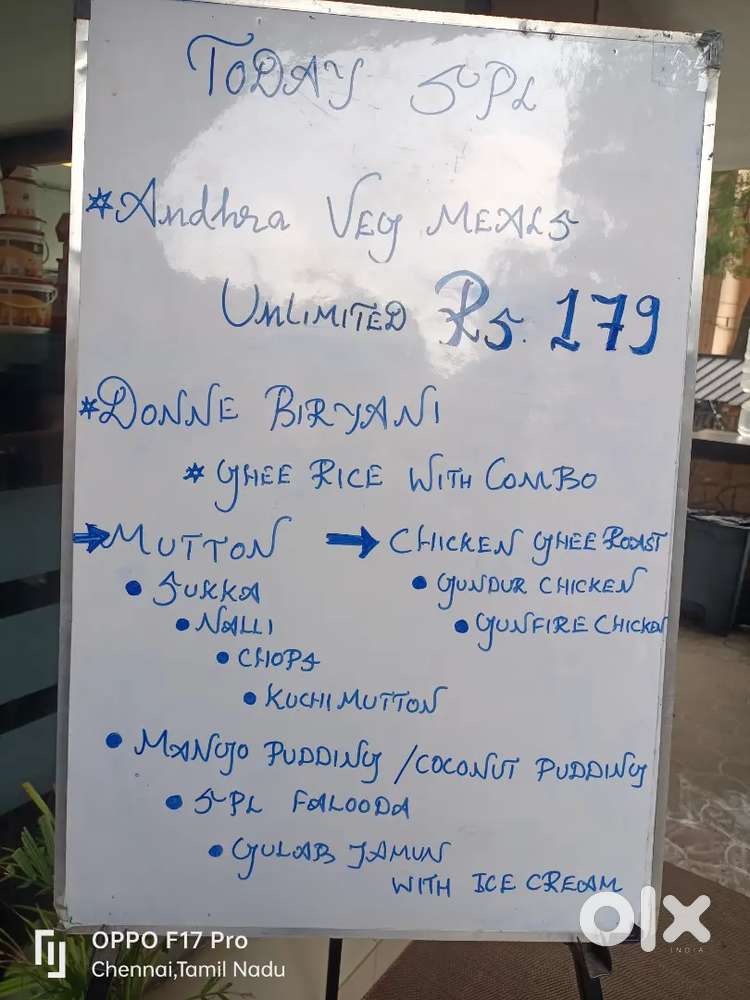 TODAY SPL
* Andhra Veg MEALS
UNLIMITED Rs. 179
* DONNE BIRYANI
* GHEE RICE WITH COMBO
→ MUTTON → CHICKEN GHEE ROAST
• SUKKA • GUNDUR CHICKEN
• NALLI • GUNFIRE CHICKEN
• CHOPS
• KUCHI MUTTON
• MANGO PUDDING / COCONUT PUDDING
• SPL FALOODA
• GULAB JAMUN
WITH ICE CREAM
olx
INDIA
OPPO F17 Pro
Chennai,Tamil Nadu